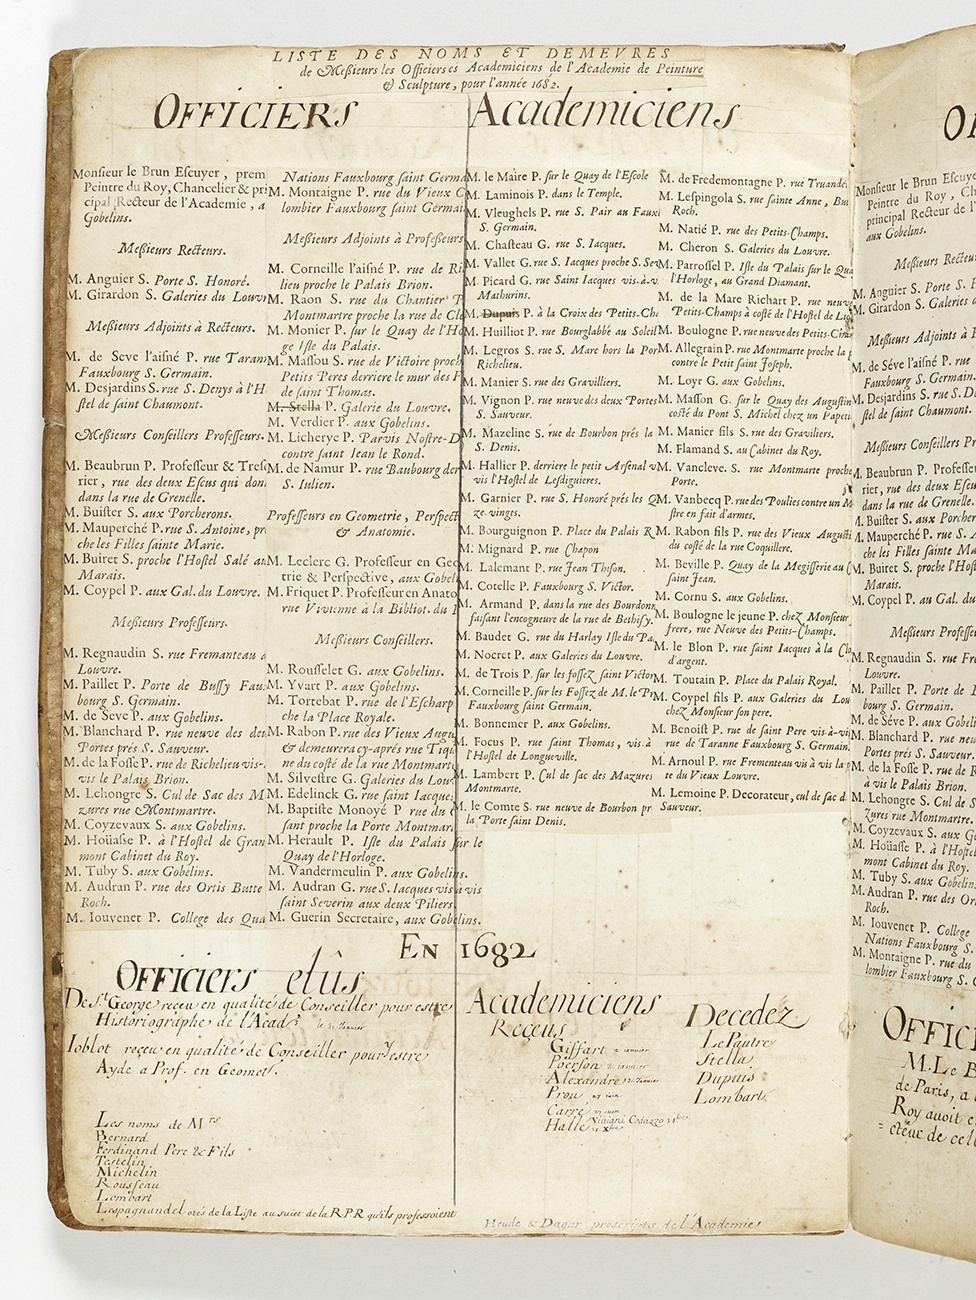 LISTE DES NOMS ET DEMEVRES
de Meßieurs les Officiers es Academiciens de l'Academie de Peinture
& Sculpture, pour l'année 1682.
OFFICIERS
Monsieur le Brun Escuyer, prem
Peintre du Roy, Chancelier & pri
cipal Recteur de l'Academie, a
Gobelins.
Meßieurs Recteurs.
M. Anguier S. Porte S. Honoré.
M. Girardon S. Galeries du Louvr
Meßieurs Adjoints à Recteurs.
M. de Seve l'aisné P. rue Taran
Fauxbourg S. Germain.
M. Desjardins S. rue S. Denys à l'H
stel de saint Chaumont.
Meßieurs Conseillers Professeurs.
M. Beaubrun P. Professeur & Tres
rier, rue des deux Escus qui don
dans la rue de Grenelle.
M. Buister S. aux Porcherons.
M. Mauperché P. rue S. Antoine, pr
che les Filles sainte Marie.
M. Buiret S. proche l'Hostel Salé au
Marais.
M. Coypel P. aux Gal. du Louvre.
Meßieurs Professeurs.
M. Regnaudin S. rue Fremanteau a
Louvre.
M. Paillet P. Porte de Bussy Fau
bourg S. Germain.
M. de Seve P. aux Gobelins.
M. Blanchard P. rue neuve des deu
Portes prés S. Sauveur.
M. de la Fosse P. rue de Richelieu vis-
vis le Palais Brion.
M. Lehongre S. Cul de Sac des M
zures rue Montmartre.
M. Coyzevaux S. aux Gobelins.
M. Hoüasse P. à l'Hostel de Gran
mont Cabinet du Roy.
M. Tuby S. aux Gobelins.
M. Audran P. rue des Ortis Butte
Roch.
M. Iouvenet P. College des Qua
Nations Fauxbourg saint Germa
M. Montaigne P. rue du Vieux C
lombier Fauxbourg saint Germai
Meßieurs Adjoints à Professeurs
M. Corneille l'aisné P. rue de Ri
lieu proche le Palais Brion.
M. Raon S. rue du Chantier P
Montmartre proche la rue de Cle
M. Monier P. sur le Quay de l'Ho
ge Isle du Palais.
M. Massou S. rue de Victoire proch
Petits Peres derriere le mur des F
de saint Thomas.
M. Stella P. Galerie du Louvre.
M. Verdier P. aux Gobelins.
M. Licherye P. Parvis Nostre-D
contre saint Iean le Rond.
M. de Namur P. rue Baubourg der
S. Iulien.
Professeurs en Geometrie, Perspect
& Anatomie.
M. Leclerc G. Professeur en Geo
trie & Perspective, aux Gobel
M. Friquet P. Professeur en Anato
rue Vivienne à la Bibliot. du
Meßieurs Conseillers.
M. Rousselet G. aux Gobelins.
M. Yvart P. aux Gobelins.
M. Tortebat P. rue de l'Escharp
che la Place Royale.
M. Rabon P. rue des Vieux Augu
& demeurera cy-aprés rue Tiqu
ne du costé de la rue Montmart
M. Silvestre G. Galeries du Lou
M. Edelinck G. rue saint Iacques
M. Baptiste Monoyé P rue du
sant proche la Porte Montmar
M. Herault P. Isle du Palais sur le
Quay de l'Horloge.
M. Vandermeulin P. aux Gobelins.
M. Audran G. rue S. Iacques vis à vis
saint Severin aux deux Piliers
M. Guerin Secretaire, aux Gobelins.
Academiciens
M. le Maire P. sur le Quay de l'Escole
M. Laminois P. dans le Temple.
M. Vleughels P. rue S. Pair au Faux
S. Germain.
M. Chasteau G. rue S. Iacques.
M. Vallet G. rue S. Iacques proche S. Sev
M. Picard G. rue Saint Iacques vis-à-v
Mathurins.
M. Dupuis P. à la Croix des Petits-Ch
M. Huilliot P. rue Bourglabbé au Soleil
M. Legros S. rue S. Marc hors la Por
Richelieu.
M. Manier S. rue des Gravilliers.
M. Vignon P. rue neuve des deux Portes
S. Sauveur.
M. Mazeline S. rue de Bourbon prés la
S. Denis.
M. Hallier P. derriere le petit Arsenal v
vis l'Hostel de Lesdiguieres.
M. Garnier P. rue S. Honoré prés les Q
ze-vingts.
M. Bourguignon P. Place du Palais R
M. Mignard P. rue Chapon
M. Lalemant P. rue Jean Thison.
M. Cotelle P. Fauxbourg S. Victor.
M. Armand P. dans la rue des Bourdonn
faisant l'encogneure de la rue de Bethisy.
M. Baudet G. rue du Harlay Isle du Pa
M. Nocret P. aux Galeries du Louvre.
M. de Trois P. sur les fossez saint Victor
M. Corneille P. sur les Fossez de M. le Pr
Fauxbourg saint Germain.
M. Bonnemer P. aux Gobelins.
M. Focus P. rue saint Thomas, vis-à
l'Hostel de Longueville.
M. Lambert P. Cul de sac des Mazures
Montmarte.
M. le Comte S. rue neuve de Bourbon pr
la Porte saint Denis.
M. de Fredemontagne P. rue Truande
M. Lespingola S. rue sainte Anne, But
Roch.
M. Natié P. rue des Petits-Champs.
M. Cheron S. Galeries du Louvre.
M. Parrossel P. Isle du Palais sur le Qua
l'Horloge, au Grand Diamant.
M. de la Mare Richart P. rue neuve
Petits-Champs à costé de l'Hostel de
M. Boulogne P. rue neuve des Petits-Cham
M. Allegrain P. rue Montmarte proche la
contre le Petit saint Joseph.
M. Loyr G. aux Gobelins.
M. Masson G. sur le Quay des Augustin
costé du Pont S. Michel chez un Papeti
M. Manier fils S. rue des Graviliers.
M. Flamand S. au Cabinet du Roy.
M. Vancleve. S. rue Montmarte proche
Porte.
M. Vanbecq P. rue des Poulies contre un M
stre en fait d'armes.
M. Rabon fils P. rue des Vieux Augusti
du costé de la rue Coquillere.
M. Beville P. Quay de la Megisserie au
saint Jean.
M. Cornu S. aux Gobelins.
M. Boulogne le jeune P. chez Monsieur
frere, rue Neuve des Petits-Champs.
M. le Blon P. rue saint Iacques à la Clo
d'argent.
M. Toutain P. Place du Palais Royal.
M. Coypel fils P. aux Galeries du Lou
chez Monsieur son pere.
M. Benoist P. rue de saint Pere vis-à-vi
rue de Taranne Fauxbourg S. Germain.
M. Arnoul P. rue Frementeau vis à vis la p
te du Vieux Louvre.
M. Lemoine P. Decorateur, cul de sac d
Sauveur.
EN 1682
OFFICIERS elûs
De St. George reçeu en qualité de Conseiller pour estre
Historiographe de l'Acad.
Ioblot reçeu en qualité de Conseiller pour estre
Ayde a Prof. en Geomet.
Les noms de Mrs
Bernard
Ferdinand Pere & Fils
Testelin
Michelin
Rousseau
Lombart
Lespagnandel otés de la Liste au sujet de la R.P.R qu'ils professoient
Academiciens
Reçeus
Giffart
Poerson
Alexandre
Prou
Carré
Hallé
Viviani Codazzo
Decedez
Le Pautre
Stella
Dupuis
Lombart
Heude & Dagar proscripts de l'Academie
Monsieur le Brun Escuye
Peintre du Roy, Ch
principal Recteur de l'
aux Gobelins.
Meßieurs Recteu
M. Anguier S. Porte S.
M. Girardon S. Galeries
Meßieurs Adjoints à
M. de Séve l'aisné P. rue
Fauxbourg S. Germain.
M. Desjardins S. rue S. D
stel de saint Chaumont.
Meßieurs Conseillers Pr
M. Beaubrun P. Profess
rier, rue des deux Esc
dans la rue de Grenelle.
M. Buister S. aux Porch
M. Mauperché P. rue S. A
che les Filles sainte Ma
M. Buiret S. proche l'Host
Marais.
M. Coypel P. au Gal. du
Meßieurs Profess
M. Regnaudin S. rue Fr
Louvre.
M. Paillet P. Porte de
bourg S. Germain.
M. de Séve P. aux Gobelin
M. Blanchard P. rue neu
Portes prés S. Sauveur.
M. de la Fosse P. rue de R
à vis le Palais Brion.
M. Lehongre S. Cul de S
zures rue Montmartre.
M. Coyzevaux S. aux G
M. Hoüasse P. à l'Host
mont Cabinet du Roy.
M. Tuby S. aux Gobelin
M. Audran P. rue des Or
Roch.
M. Iouvenet P. College
Nations Fauxbourg S.
M. Montaigne P. rue du
lombier Fauxbourg S. G
OFFICI
M. Le B
de Paris, a
Roy avoit e
cteur de cel